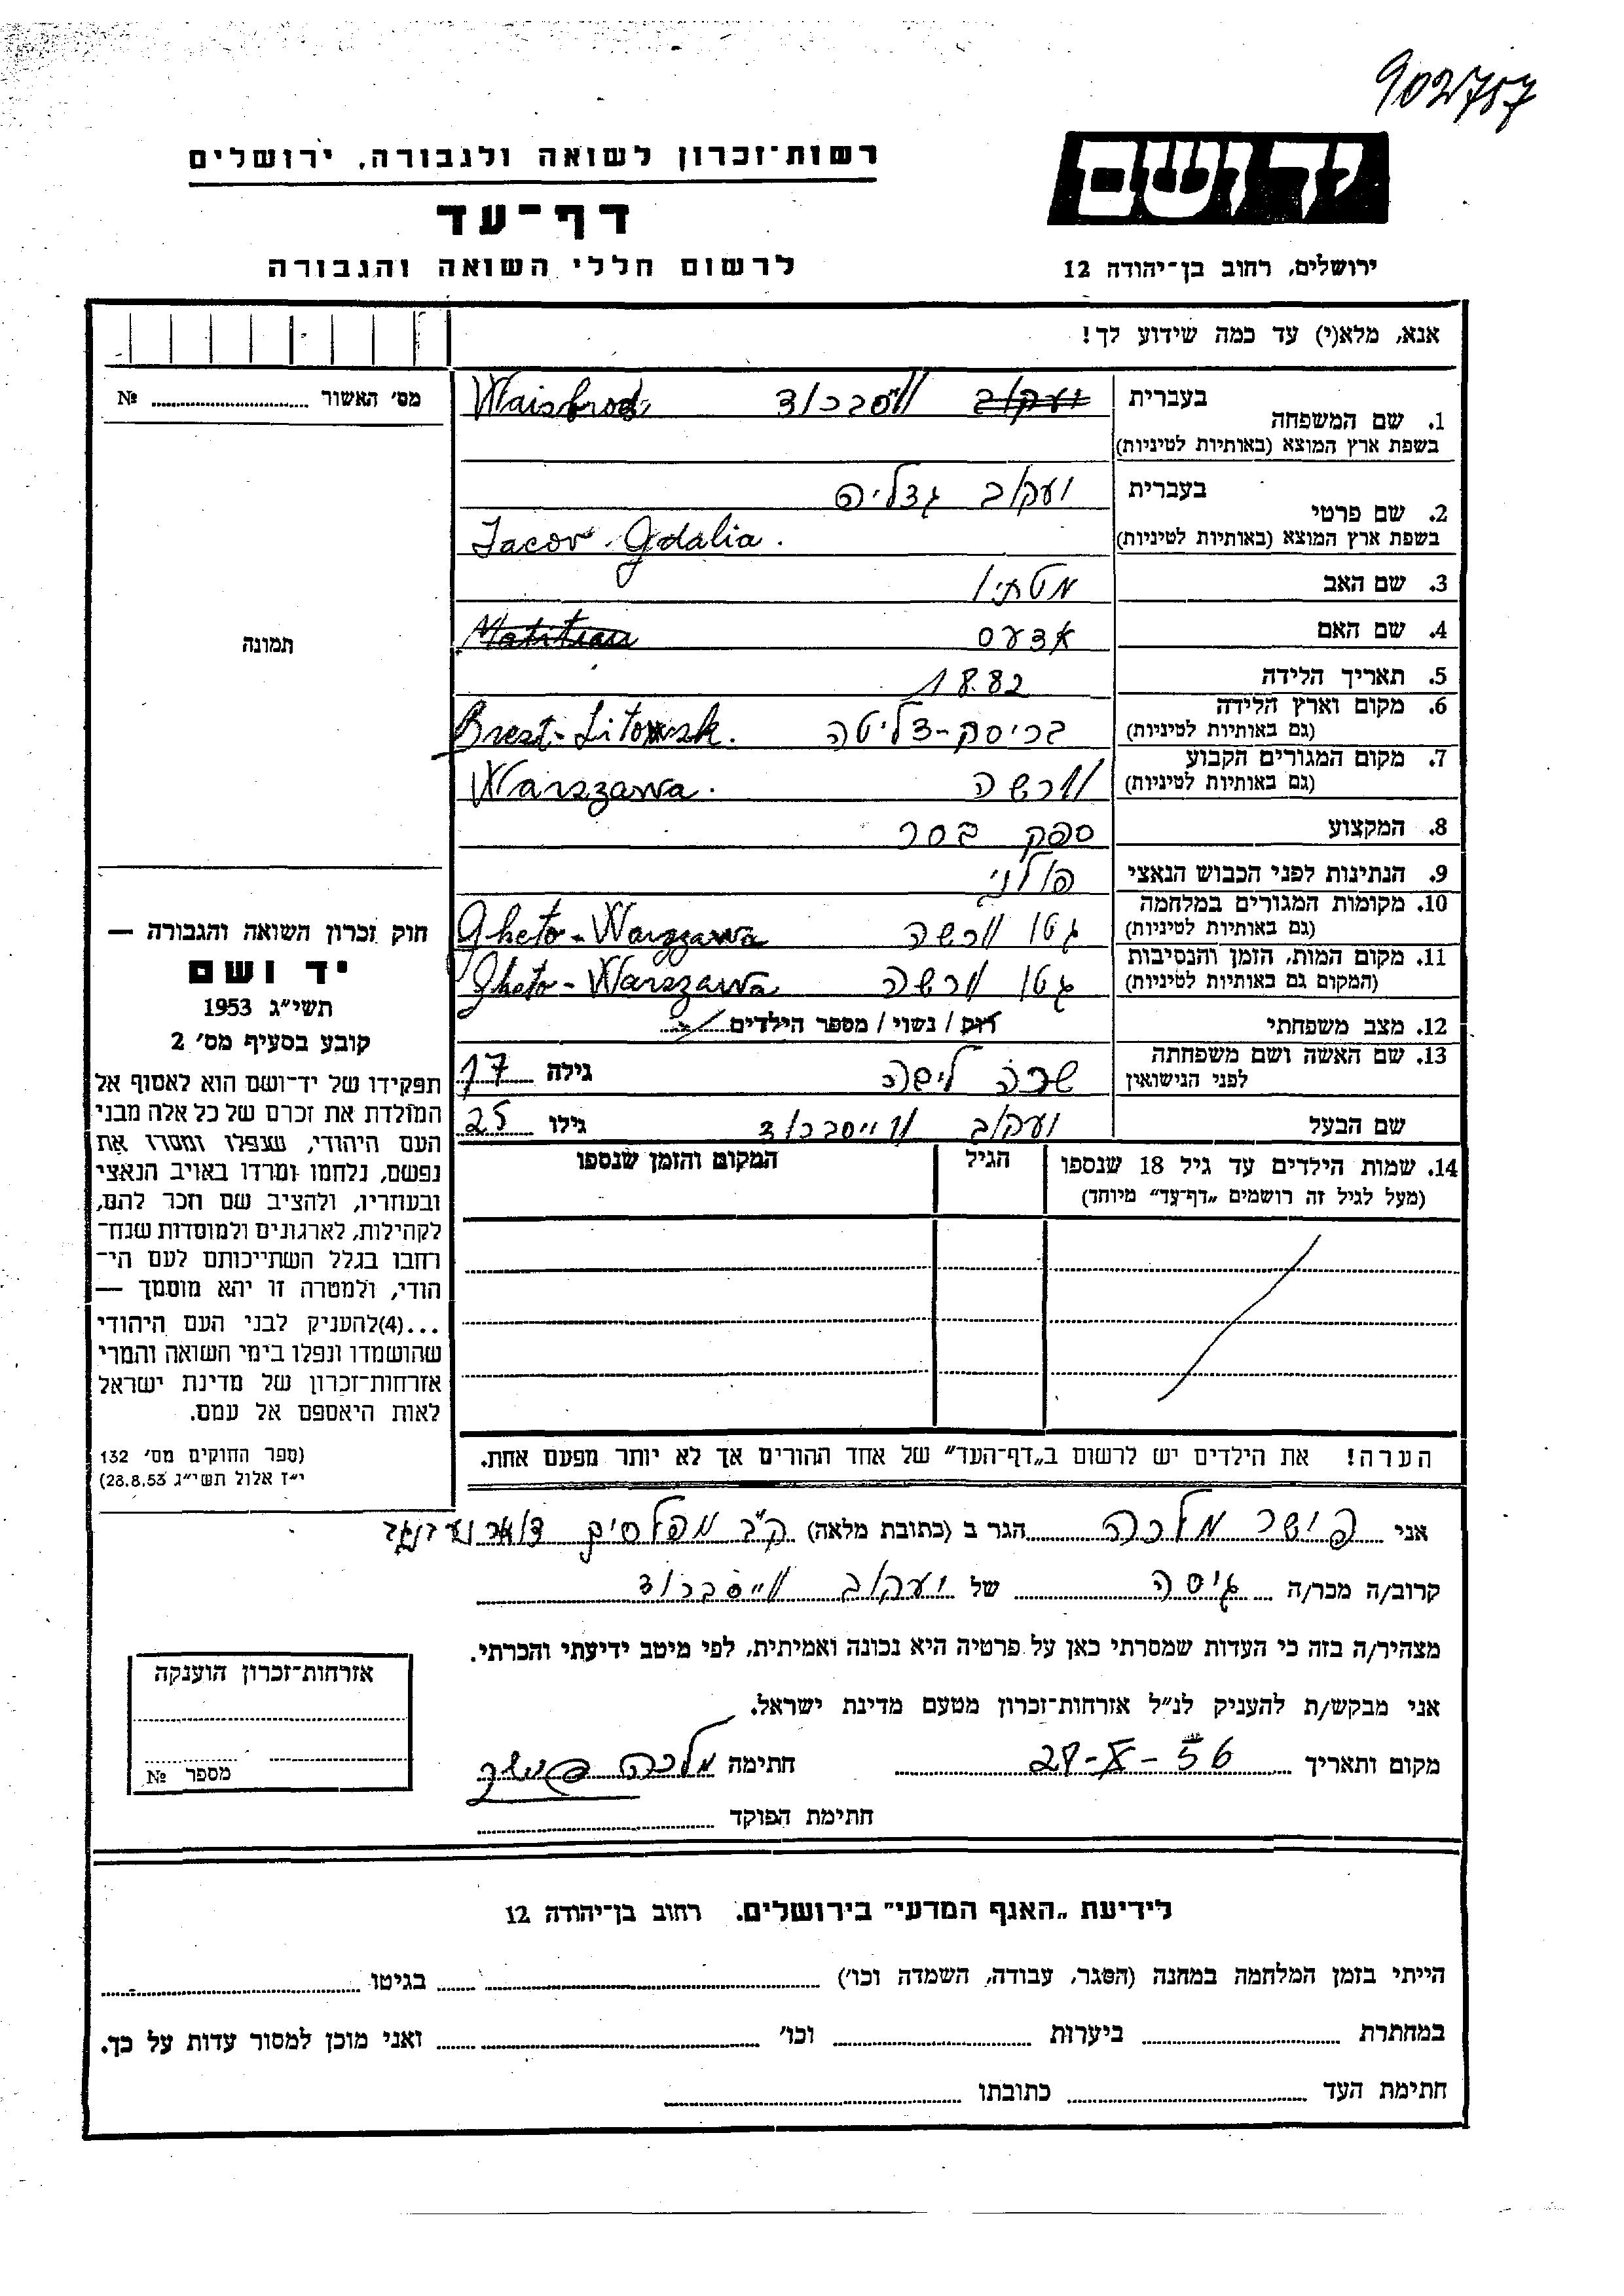 902757
רשות־זכרון לשואה ולגבורה, ירושלים
דף־עד
לרשום חללי השואה והגבורה
יד ושם
ירושלים, רחוב בן־יהודה 12
אנא, מלא(י) עד כמה שידוע לך!
מס׳ האשור № 
תמונה
1. שם המשפחה
בעברית יעקוב וויסברוד Waisbrod
בשפת ארץ המוצא (באותיות לטיניות)
2. שם פרטי
בעברית יעקוב גדליה
בשפת ארץ המוצא (באותיות לטיניות) Jacov Gdalia.
3. שם האב מטתיו
4. שם האם אדעס Matitiau
5. תאריך הלידה 1882
6. מקום וארץ הלידה בריסק-דליטה Brezt-Litowsk.
(גם באותיות לטיניות)
7. מקום המגורים הקבוע וורשה Warszawa.
(גם באותיות לטיניות)
8. המקצוע ספק בסר
9. הנתינות לפני הכבוש הנאצי פולני
10. מקומות המגורים במלחמה גטו וורשה Gheto-Warszawa
(גם באותיות לטיניות)
11. מקום המות, הזמן והנסיבות גטו וורשה Gheto-Warszawa
(המקום גם באותיות לטיניות)
12. מצב משפחתי רוק / נשוי / מספר הילדים
13. שם האשה ושם משפחתה שרה ליפה גילה 17
לפני הנישואין
שם הבעל יעקוב ווייסברוד גילו 25
14. שמות הילדים עד גיל 18 שנספו הגיל המקום והזמן שנספו
(מעל לגיל זה רושמים „דף־עד״ מיוחד)
הערה! את הילדים יש לרשום ב„דף־העד״ של אחד ההורים אך לא יותר מפעם אחת.
חוק זכרון השואה והגבורה —
יד ושם
תשי״ג 1953
קובע בסעיף מס׳ 2
תפקידו של יד־ושם הוא לאסוף אל
המולדת את זכרם של כל אלה מבני
העם היהודי, שנפלו ומסרו את
נפשם, נלחמו ומרדו באויב הנאצי
ובעוזריו, ולהציב שם וזכר להם,
לקהילות, לארגונים ולמוסדות שנח־
רבו בגלל השתייכותם לעם הי־
הודי, ולמטרה זו יהא מוסמך —
...(4)להעניק לבני העם היהודי
שהושמדו ונפלו בימי השואה והמרי
אזרחות־זכרון של מדינת ישראל
לאות היאספם אל עמם.
(ספר החוקים מס׳ 132
י״ז אלול תשי״ג 28.8.53)
אני פישר מלכה הגר ב (כתובת מלאה) ק״ב מפלסים דואר נע בנגב
קרוב/ה מכר/ה גיסה של יעקוב ווייסברוד
מצהיר/ה בזה כי העדות שמסרתי כאן על פרטיה היא נכונה ואמיתית, לפי מיטב ידיעתי והכרתי.
אני מבקש/ת להעניק לנ״ל אזרחות־זכרון מטעם מדינת ישראל.
מקום ותאריך 28-X-56 חתימה מלכה פישר
חתימת הפוקד
אזרחות־זכרון הוענקה
מספר №
לידיעת „האגף המדעי״ בירושלים. רחוב בן־יהודה 12
הייתי בזמן המלחמה במחנה (הסגר, עבודה, השמדה וכו׳) בגיטו
במחתרת ביערות וכו׳ ואני מוכן למסור עדות על כך.
חתימת העד כתובתו